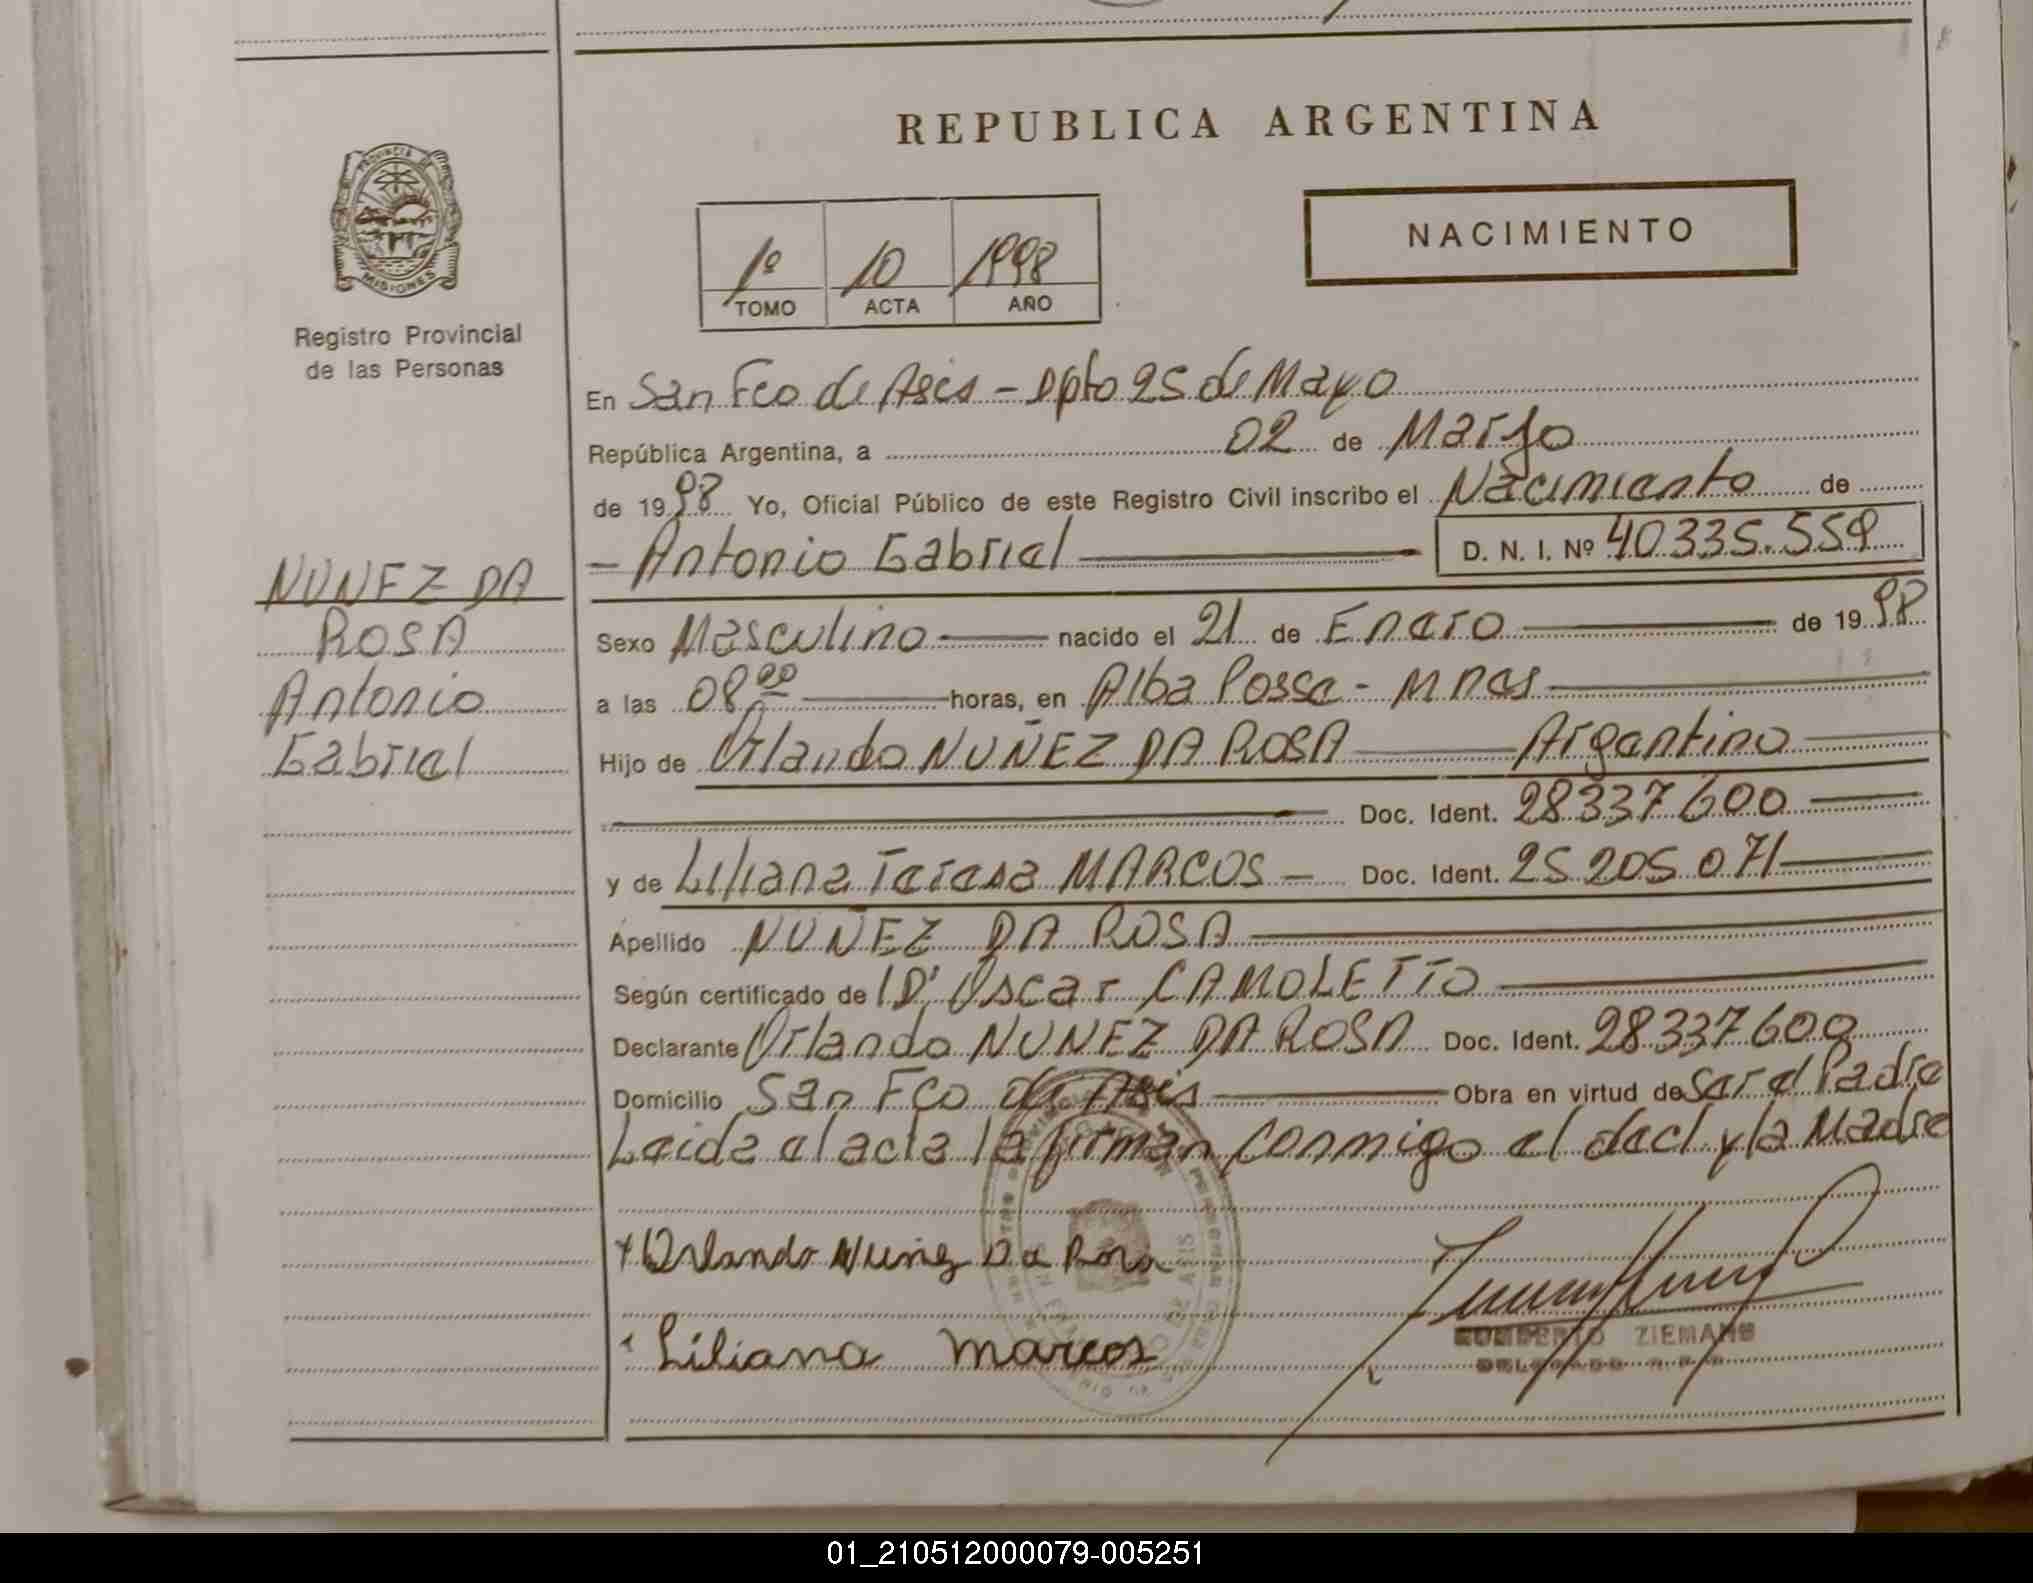 REPUBLICA ARGENTINA
PROVINCIA DE
MISIONES
Registro Provincial
de las Personas
1º 10 1998
TOMO ACTA AÑO
NACIMIENTO
En San Fco de Asis - Dpto 25 de Mayo
República Argentina, a 02 de Marzo
de 1998 Yo, Oficial Público de este Registro Civil inscribo el Nacimiento de
- Antonio Gabriel D. N. I. Nº 40.335.559
NUNEZ DA
ROSA
Antonio
Gabriel
Sexo Masculino nacido el 21 de Enero de 1998
a las 08 00 horas, en Alba Posse - Mnes
Hijo de Orlando NUÑEZ DA ROSA Argentino
Doc. Ident. 28337600
y de Liliana Teresa MARCOS - Doc. Ident. 25205071
Apellido NUÑEZ DA ROSA
Según certificado de Oscar CAMOLETTO
Declarante Orlando NUNEZ DA ROSA Doc. Ident. 28337600
Domicilio San Fco de Asis Obra en virtud de Ser el Padre
Leida el acta la firman conmigo el decl y la Madre
Orlando Nuñez Da Rosa
Liliana Marcos
ZIEMANN
01_210512000079-005251